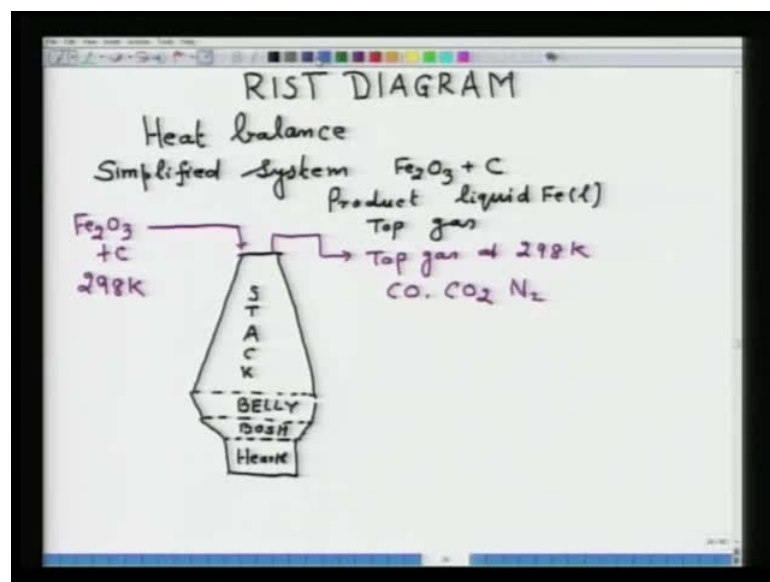 RIST DIAGRAM
Heat balance
Simplified system Fe2O3 + C
Product liquid Fe(l)
Top gas
Fe2O3
+C
298K
Top gas at 298K
CO. CO2 N2
STACK
BELLY
BOSH
Hearth